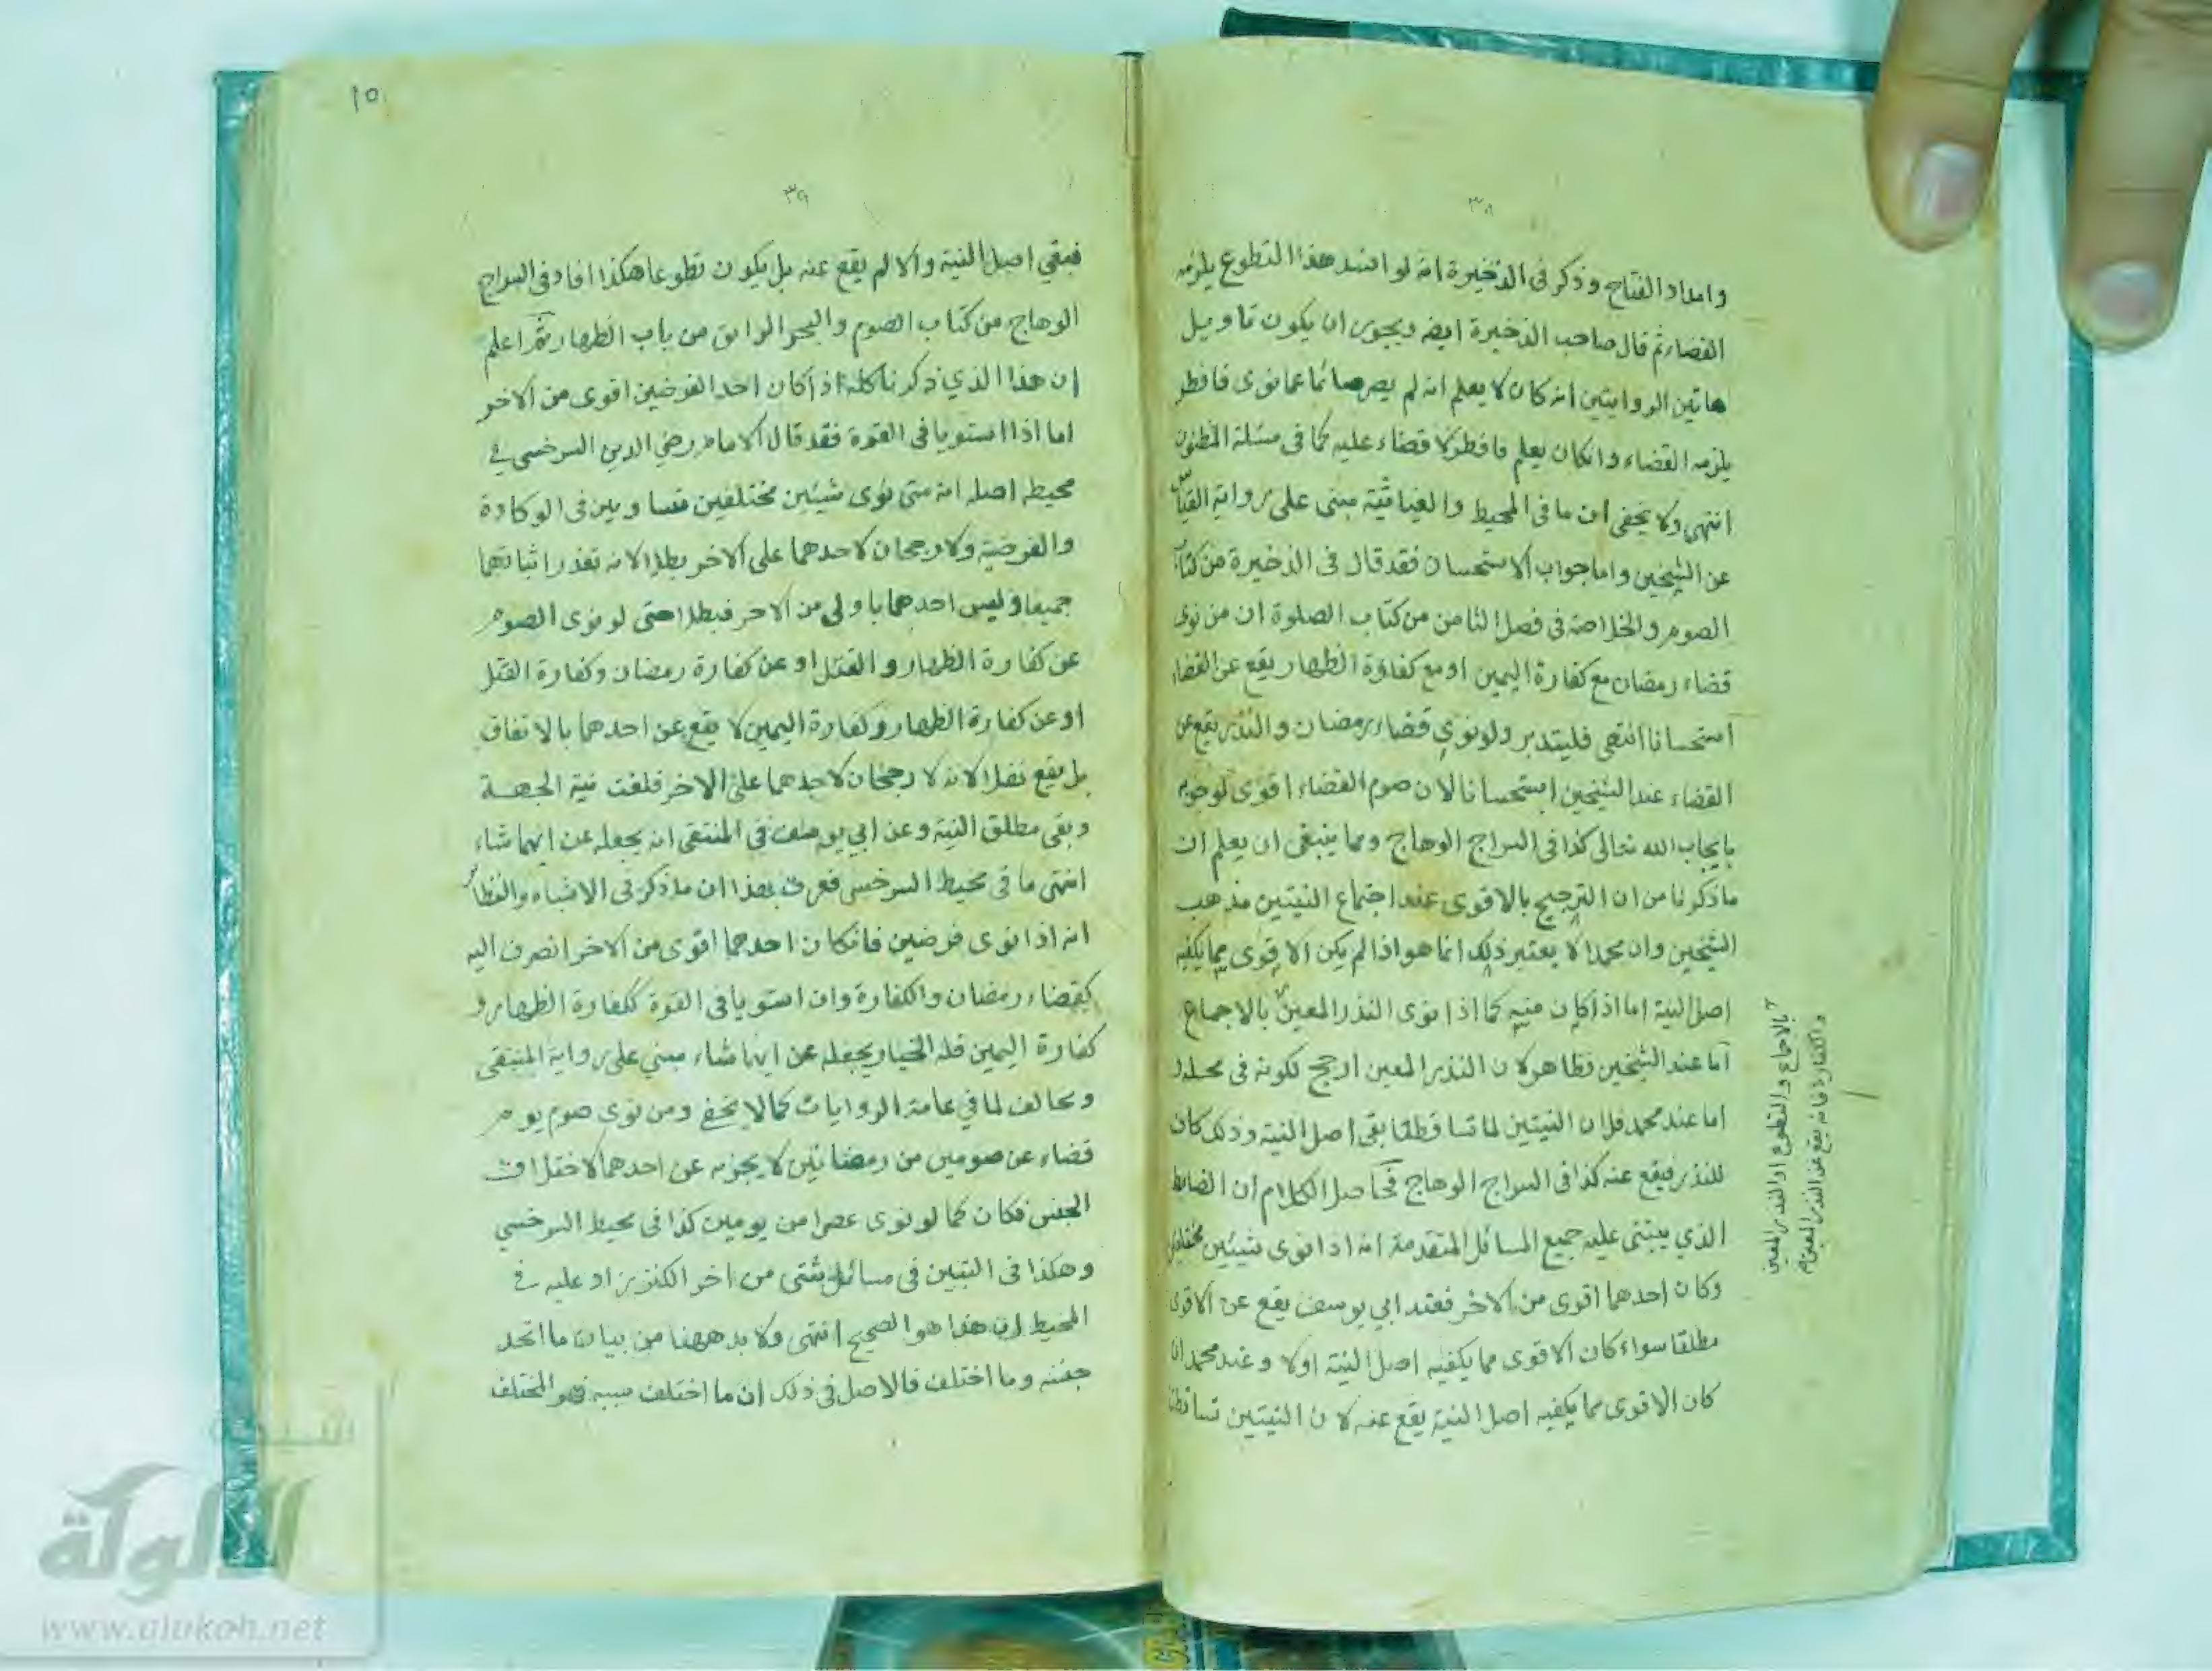 ٣٨
وامداد الفتاح وذكر في الذخيرة انه لو افسد هذا التطوع يلزمه
القضاء ثم قال صاحب الذخيرة ايضه ويجوز ان يكون تاويل
هاتين الروايتين انه كان لا يعلم انه لم يصر صائما عما نوى فافطر
يلزمه القضاء وان كان يعلم فافطر لا قضاء عليه كما في مسئلة المظنون
انتهى ولا يخفى ان ما في المحيط والغياثية مبنى على رواية القياس
عن الشيخين واما جواب الاستحسان فقد قال في الذخيرة من كتاب
الصوم والخلاصة في فصل الثامن من كتاب الصلوة ان من نوى
قضاء رمضان مع كفارة اليمين او مع كفارة الظهار يقع عن القضاء
استحسانا انتهى فليتدبر ولو نوى قضاء رمضان والنذر يقع عن
القضاء عند الشيخين استحسانا لان صوم القضاء اقوى لوجوبه
بايجاب الله تعالى كذا في السراج الوهاج ومما ينبغى ان يعلم ان
ما ذكرنا من ان الترجيح بالاقوى عند اجتماع النيتين مذهب
الشيخين وان محمدا لا يعتبر ذلك انما هو اذا لم يكن الاقوى مما يكفيه
اصل النية اما اذا كان منه كما اذا نوى النذر المعين بالاجماع
اما عند الشيخين فظاهر لان النذر المعين ارجح لكونه في محله و
اما عند محمد فلان النيتين لما تساقطتا بقى اصل النية وذلك كان
للنذر فيقع عنه كذا في السراج الوهاج فحاصل الكلام ان الضابط
الذي يبتنى عليه جميع المسائل المتقدمة انه اذا نوى شيئين مختلفين
وكان احدهما اقوى من الاخر فعند ابي يوسف يقع عن الاقوى
مطلقا سواء كان الاقوى مما يكفيه اصل النية اولا وعند محمد ان
كان الاقوى مما يكفيه اصل النية يقع عنه لان النيتين تساقطتا
بالاجماع والتطوع او النذر المعين
والكفارة فانه يقع عن النذر المعين
١٥
٣٩
فبقي اصل النية والا لم يقع عنه بل يكون تطوعا هكذا افاد في السراج
الوهاج من كتاب الصوم والبحر الرائق من باب الظهار ثم اعلم
ان هذا الذي ذكرنا كله اذا كان احد الفرضين اقوى من الاخر
اما اذا استويا في القوة فقد قال الامام رضي الدين السرخسي في
محيطه اصله انه متى نوى شيئين مختلفين متساويين في الوكادة
والفرضية ولا رجحان لاحدهما على الاخر بطلا لانه تعذر اثباتهما
جميعا وليس احدهما باولى من الاخر فبطلا حتى لو نوى الصوم
عن كفارة الظهار والقتل او عن كفارة رمضان وكفارة القتل
او عن كفارة الظهار وكفارة اليمين لا يقع عن احدهما بالاتفاق
بل يقع نفلا لانه لا رجحان لاحدهما على الاخر فلغت نية الجهة
وبقى مطلق النية وعن ابي يوسف في المنتقى انه يجعله عن ايهما شاء
انتهى ما في محيط السرخسى فعرف بهذا ان ما ذكر في الاشباه والنظائر
انه اذا نوى فرضين فان كان احدهما اقوى من الاخر انصرف اليه
كقضاء رمضان والكفارة وان استويا في القوة ككفارة الظهار و
كفارة اليمين فله الخيار يجعله عن ايهما شاء مبني على رواية المنتقى
ومخالف لما في عامة الروايات كما لا يخفى ومن نوى صوم يوم
قضاء عن صومين من رمضانين لا يجزيه عن احدهما لاختلاف
الجنس فكان كما لو نوى عصرا من يومين كذا في محيط السرخسي
وهكذا في التبيين في مسائل شتى من اخر الكنز زاد عليه في
المحيط ان هذا هو الصحيح انتهى ولا بد ههنا من بيان ما اتحد
جنسه وما اختلف فالاصل في ذلك ان ما اختلف سببه فهو المختلف
شبكة
الألوكة
www.alukah.net